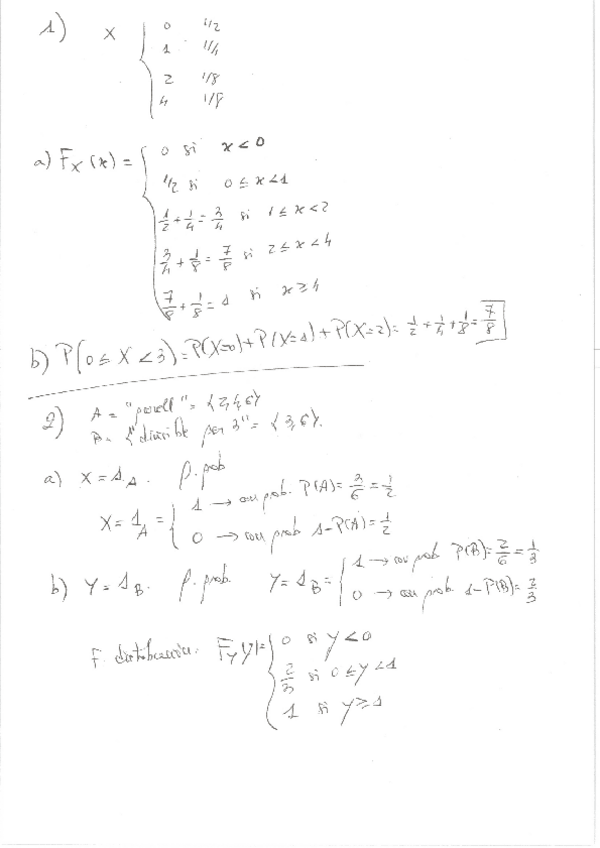 1) X { 0 1/2
1 1/4
2 1/8
4 1/8
a) F_X(x) = { 0 si x < 0
1/2 si 0 ≤ x < 1
1/2 + 1/4 = 3/4 si 1 ≤ x < 2
3/4 + 1/8 = 7/8 si 2 ≤ x < 4
7/8 + 1/8 = 1 si x ≥ 4
b) P(0 ≤ X < 3) = P(X=0) + P(X=1) + P(X=2) = 1/2 + 1/4 + 1/8 = 7/8
2) A = "parell" = {2,4,6}
B = {"divisible per 3" = {3,6}.
a) X = 1_A. f. prob
X = 1_A = { 1 → con prob. P(A) = 3/6 = 1/2
0 → con prob 1-P(A) = 1/2
b) Y = 1_B. f. prob. Y = 1_B = { 1 → con prob P(B) = 2/6 = 1/3
0 → con prob 1-P(B) = 2/3
F. F_Y(y) = { 0 si y < 0
2/3 si 0 ≤ y < 1
1 si y ≥ 1